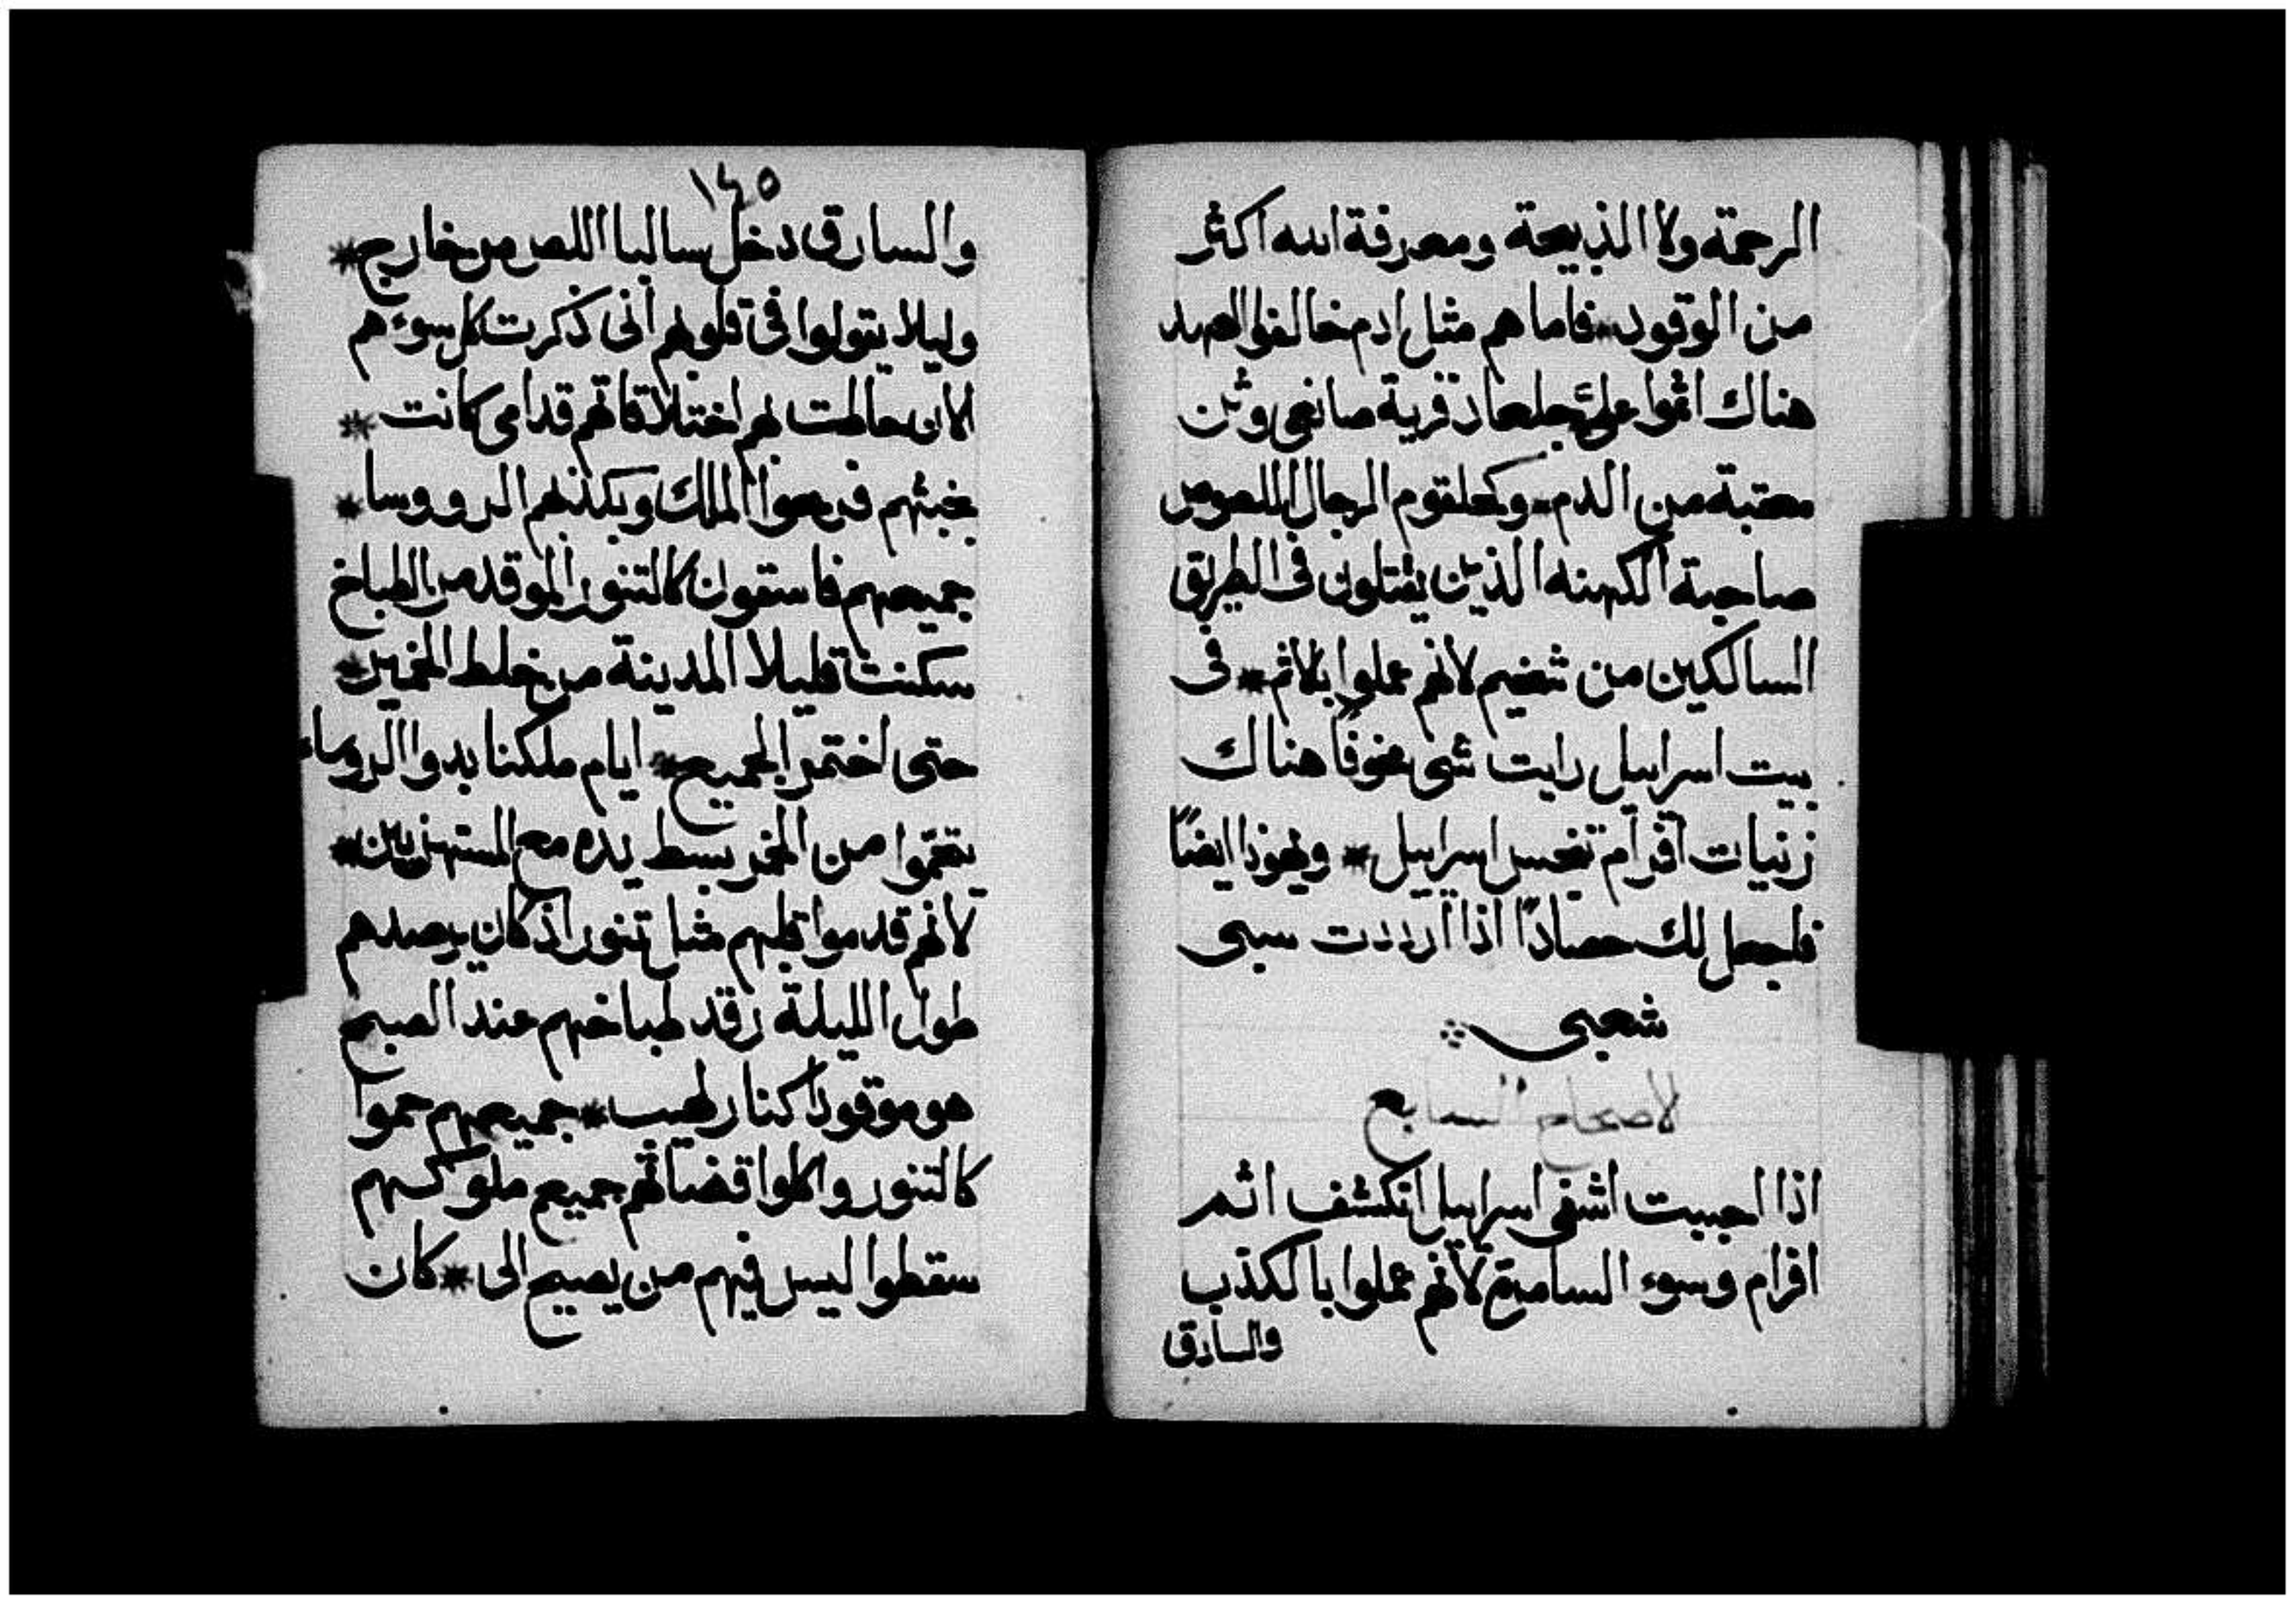 الرحمة ولا الذبيحة ومعرفة الله اكثر
من الوقود * فاما هم مثل ادم خالفوا العهد
هناك اثموا علىَّ جلعاد قرية صانعى وثن
معتبة من الدم * وكحلقوم الرجال اللصوص
صاحبة الكهنه الذين يقتلون فى الطريق
السالكين من شخيم لانهم عملوا بالاثم * فى
بيت اسراييل رايت شى مخوفًا هناك
زنيات افرام تنجس اسراييل * ويهوذا ايضًا
فاجعل لك حصادًا اذا ارددت سبى
شعبى
لاصحاح السابع
اذا احببت اشفى اسراييل انكشف اثم
افرام وسوء السامرة لانهم عملوا بالكذب
والسارق
١٤٥
والسارق دخل سالبا اللص من خارج *
وليلا يقولوا فى قلوبهم انى ذكرت كل سوءهم
الان حاطت بهم اختلاقاتهم قدامى كانت *
بخبثهم فرحوا الملك وبكذبهم الرووسا *
جميعهم فاسقون كالتنور الموقد من الطباخ
سكنت قليلا المدينة من خلط الخمير *
حتى اختمر الجميع * ايام ملكنا بدوا الروساء
يتقموا من الخمر بسط يده مع المستهزيين *
لانهم قدموا قلبهم مثل تنور اذ كان يرصدهم
طول الليلة رقد طباخهم عند الصبح
هو موقودًا كنار لهيب * جميعهم حموا
كالتنور واكلوا قضاتهم جميع ملوكهم
سقطوا ليس فيهم من يصيح الى * كان